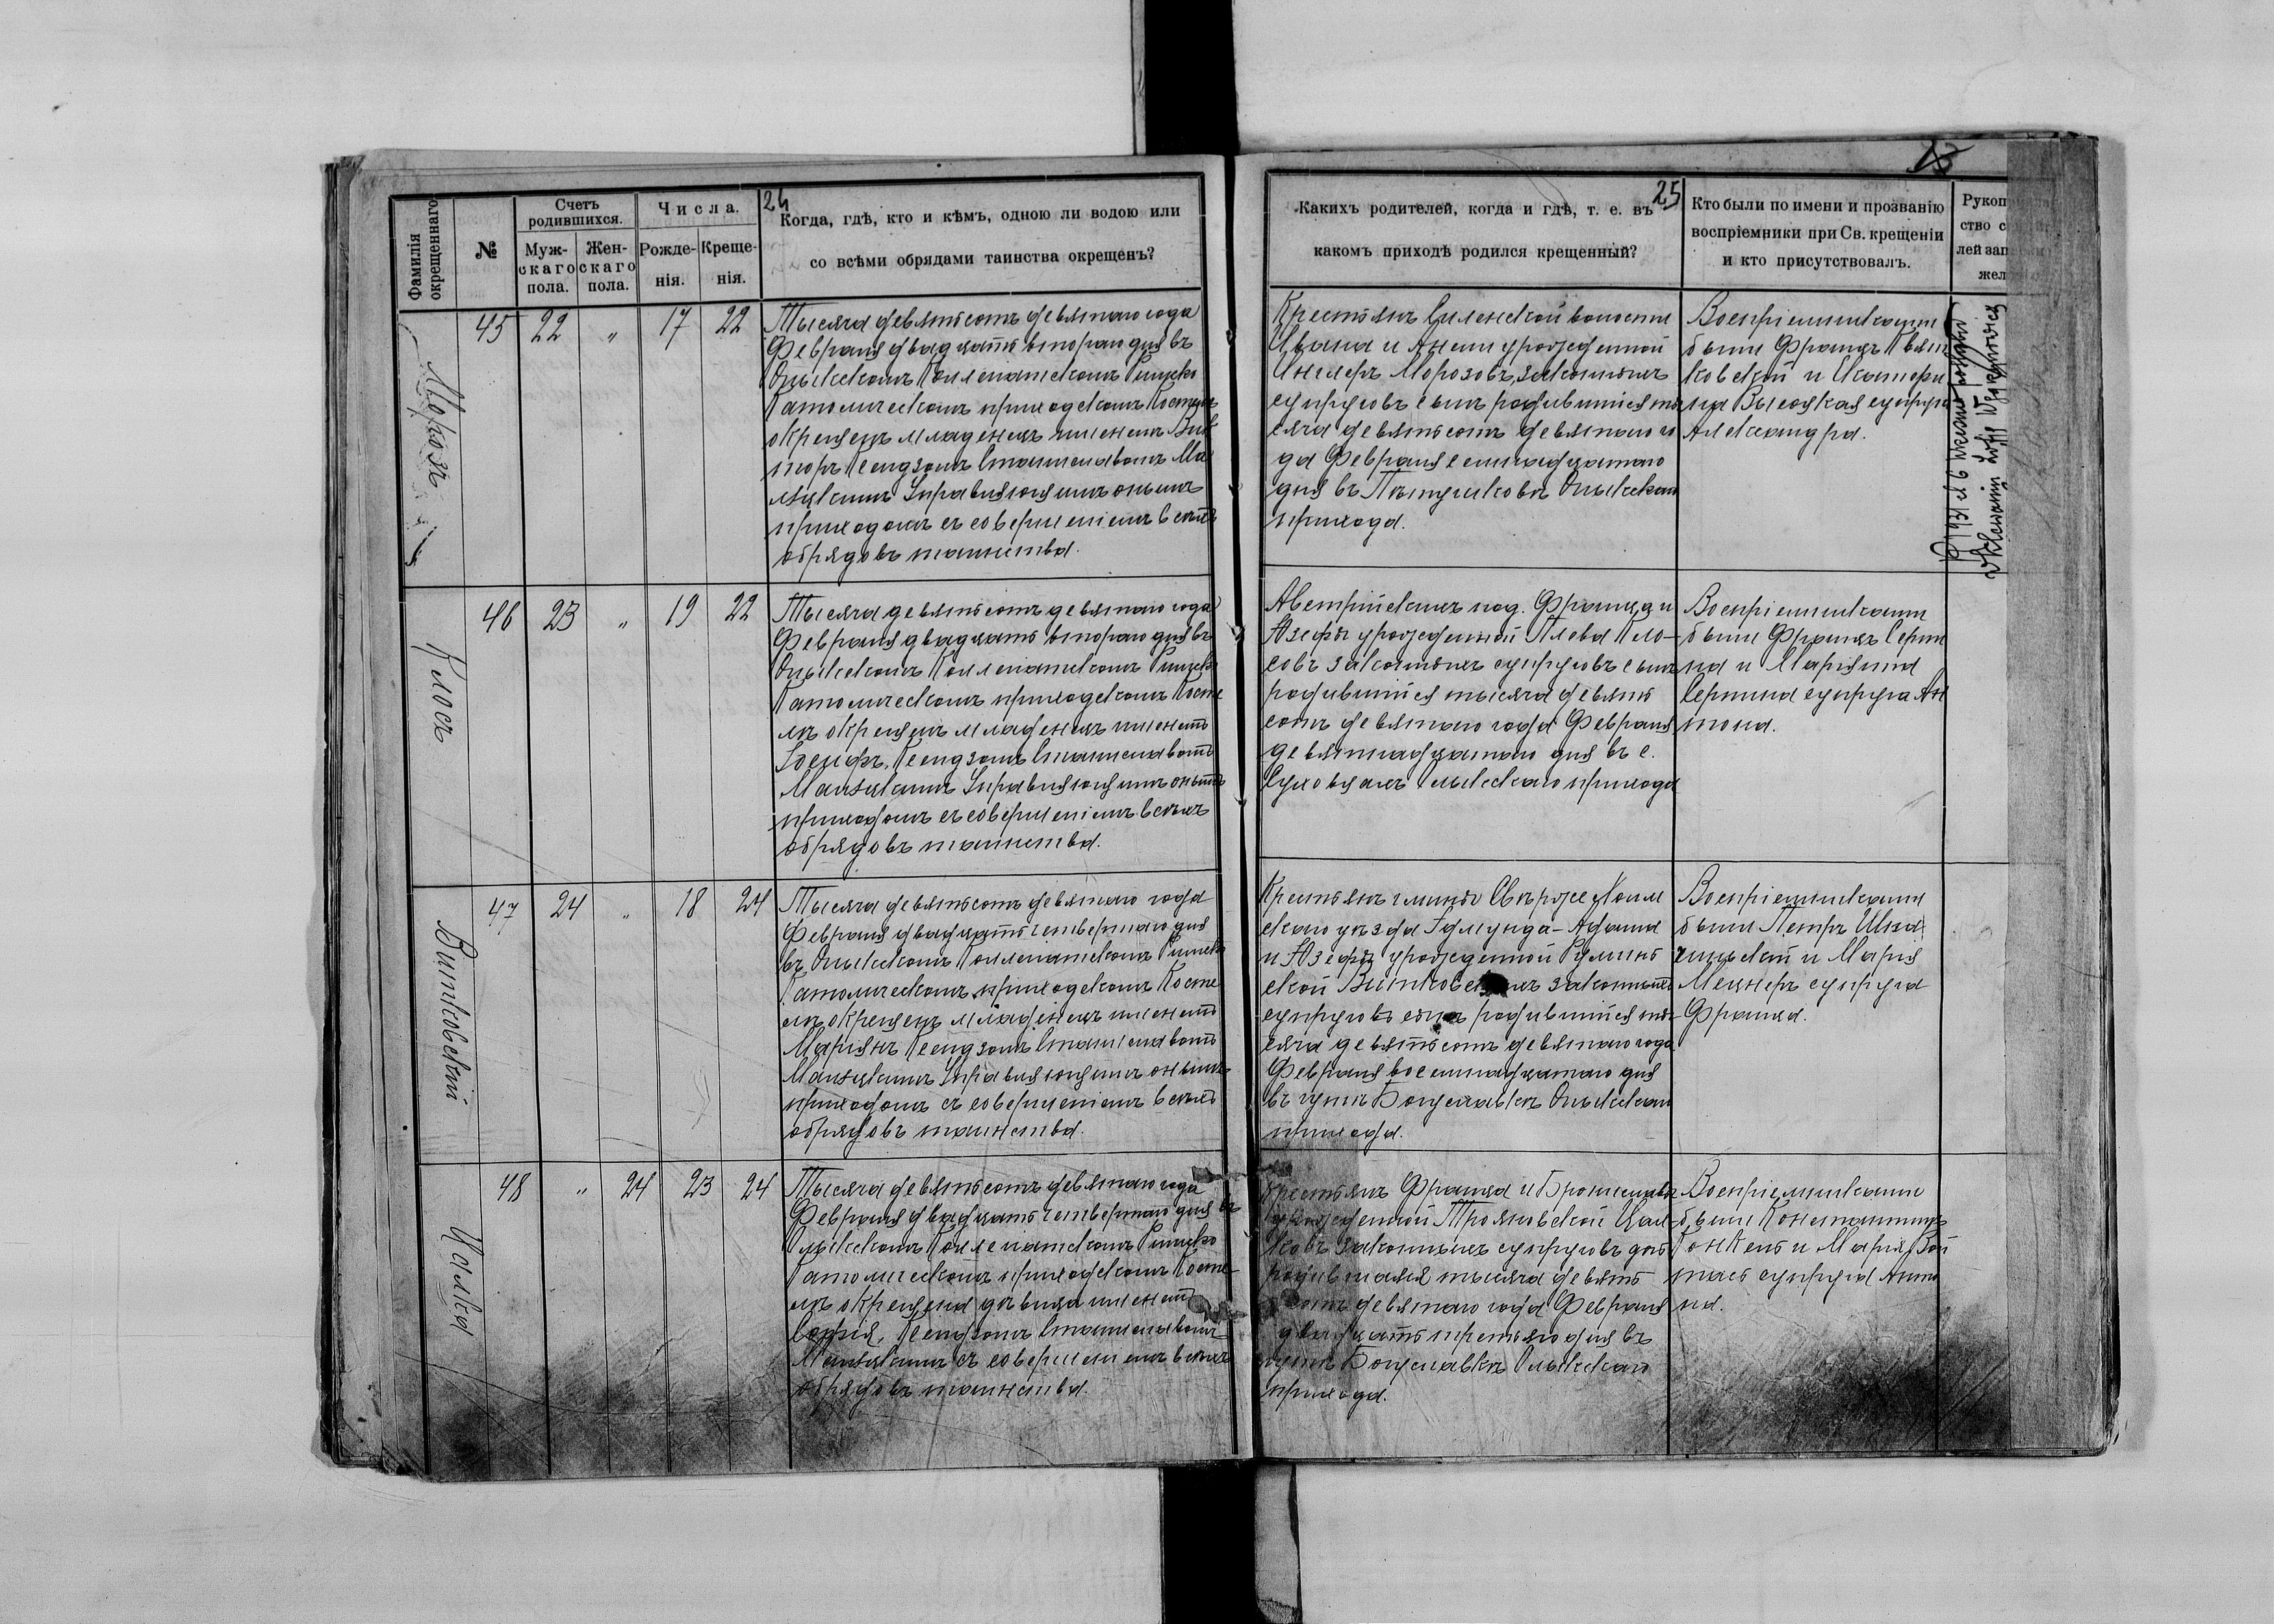 24
Фамилія окрещеннаго
№
Счетъ родившихся.
Муж-
скаго
пола.
Жен-
скаго
пола.
Числа.
Рожде-
нія.
Креще-
нія.
Когда, гдѣ, кто и кѣмъ, одною ли водою или
со всѣми обрядами таинства окрещенъ?
Морозъ
45 22 " 17 22
Тысяча девятьсотъ девятаго года
Февраля двадцать втораго дня въ
Олыкскомъ Коллегіатскомъ Римско
Католическомъ приходскомъ Костелѣ
окрещенъ младенецъ именемъ Вик
торъ Ксендзомъ Станиславомъ Ма
Управляющимъ онымъ
приходомъ съ совершеніемъ всѣхъ
обрядовъ таинства.
Клосъ
46 23 " 19 22
Тысяча девятьсотъ девятаго года
Февраля двадцать втораго дня въ
Олыкскомъ Коллегіатскомъ Римско
Католическомъ приходскомъ Косте
лѣ окрещенъ младенецъ именемъ
Іосифъ, Ксендзомъ Станиславомъ
Управляющимъ онымъ
приходомъ съ совершеніемъ всѣхъ
обрядовъ таинства.
Витковскій
47 24 " 18 24
Тысяча девятьсотъ девятаго года
Февраля двадцать четвертаго дня
въ Олыкскомъ Коллегіатскомъ Римско
Католическомъ приходскомъ Косте
лѣ окрещенъ младенецъ именемъ
Марянъ Ксендзомъ Станиславомъ
Управляющимъ онымъ
приходомъ съ совершеніемъ всѣхъ
обрядовъ таинства.
Цалка
48 " 24 23 24
Тысяча девятьсотъ девятаго года
Февраля двадцать четвертаго дня въ
Олыкскомъ Коллегіатскомъ Римско
Католическомъ приходскомъ Косте
лѣ окрещена дѣвица именемъ
Софія, Ксендзомъ Станиславомъ
съ совершеніемъ всѣхъ
обрядовъ таинства.
25
Какихъ родителей, когда и гдѣ, т. е. въ
какомъ приходѣ родился крещенный?
Кто были по имени и прозванію
воспріемники при Св. крещеніи
и кто присутствовалъ.
Рукоп
ство с
лей зап
жел
Крестьянъ Силенской волости
Ивана и Анели урожденной
Морозовъ, законныхъ
супруговъ сынъ родившійся ты
сяча девятьсотъ девятаго го
да Февраля семнадцатаго
дня въ Олыкскаго
прихода.
Воспріемниками
были Францъ Квят
ковскій и Екатери
на Высоцкая супруга
Александра.
Австрійскихъ под. Франца и
Юзефы урожденной Плева Кло-
совъ законныхъ супруговъ сынъ
родившійся тысяча девять
сотъ девятаго года Февраля
девятнадцатаго дня въ с.
Суховцахъ Олыкскаго прихода
Воспріемниками
были Францъ Серти
на и Маріанна
Сертина супруга Ан
тона.
Крестьянъ гмины Свѣрже Холм
скаго уѣзда Едмунда-Адама
и Юзефы урожденной
ской Витковскихъ законныхъ
супруговъ сынъ родившійся ты-
сяча девятьсотъ девятаго года
Февраля восемнадцатаго дня
въ гутѣ Богуславкѣ Олыкскаго
прихода.
Воспріемниками
были Петръ
и Марія
Мецнеръ супруга
Франца.
Крестьянъ Франца и Брониславы
урожденной Трояновской Цал-
ковъ законныхъ супруговъ дочь
родившаяся тысяча девять
сотъ девятаго года Февраля
двадцать третьяго дня въ
гутѣ Богуславкѣ Олыкскаго
прихода.
Воспріемниками
были Константинъ
и Марія
супруга Анто
на.